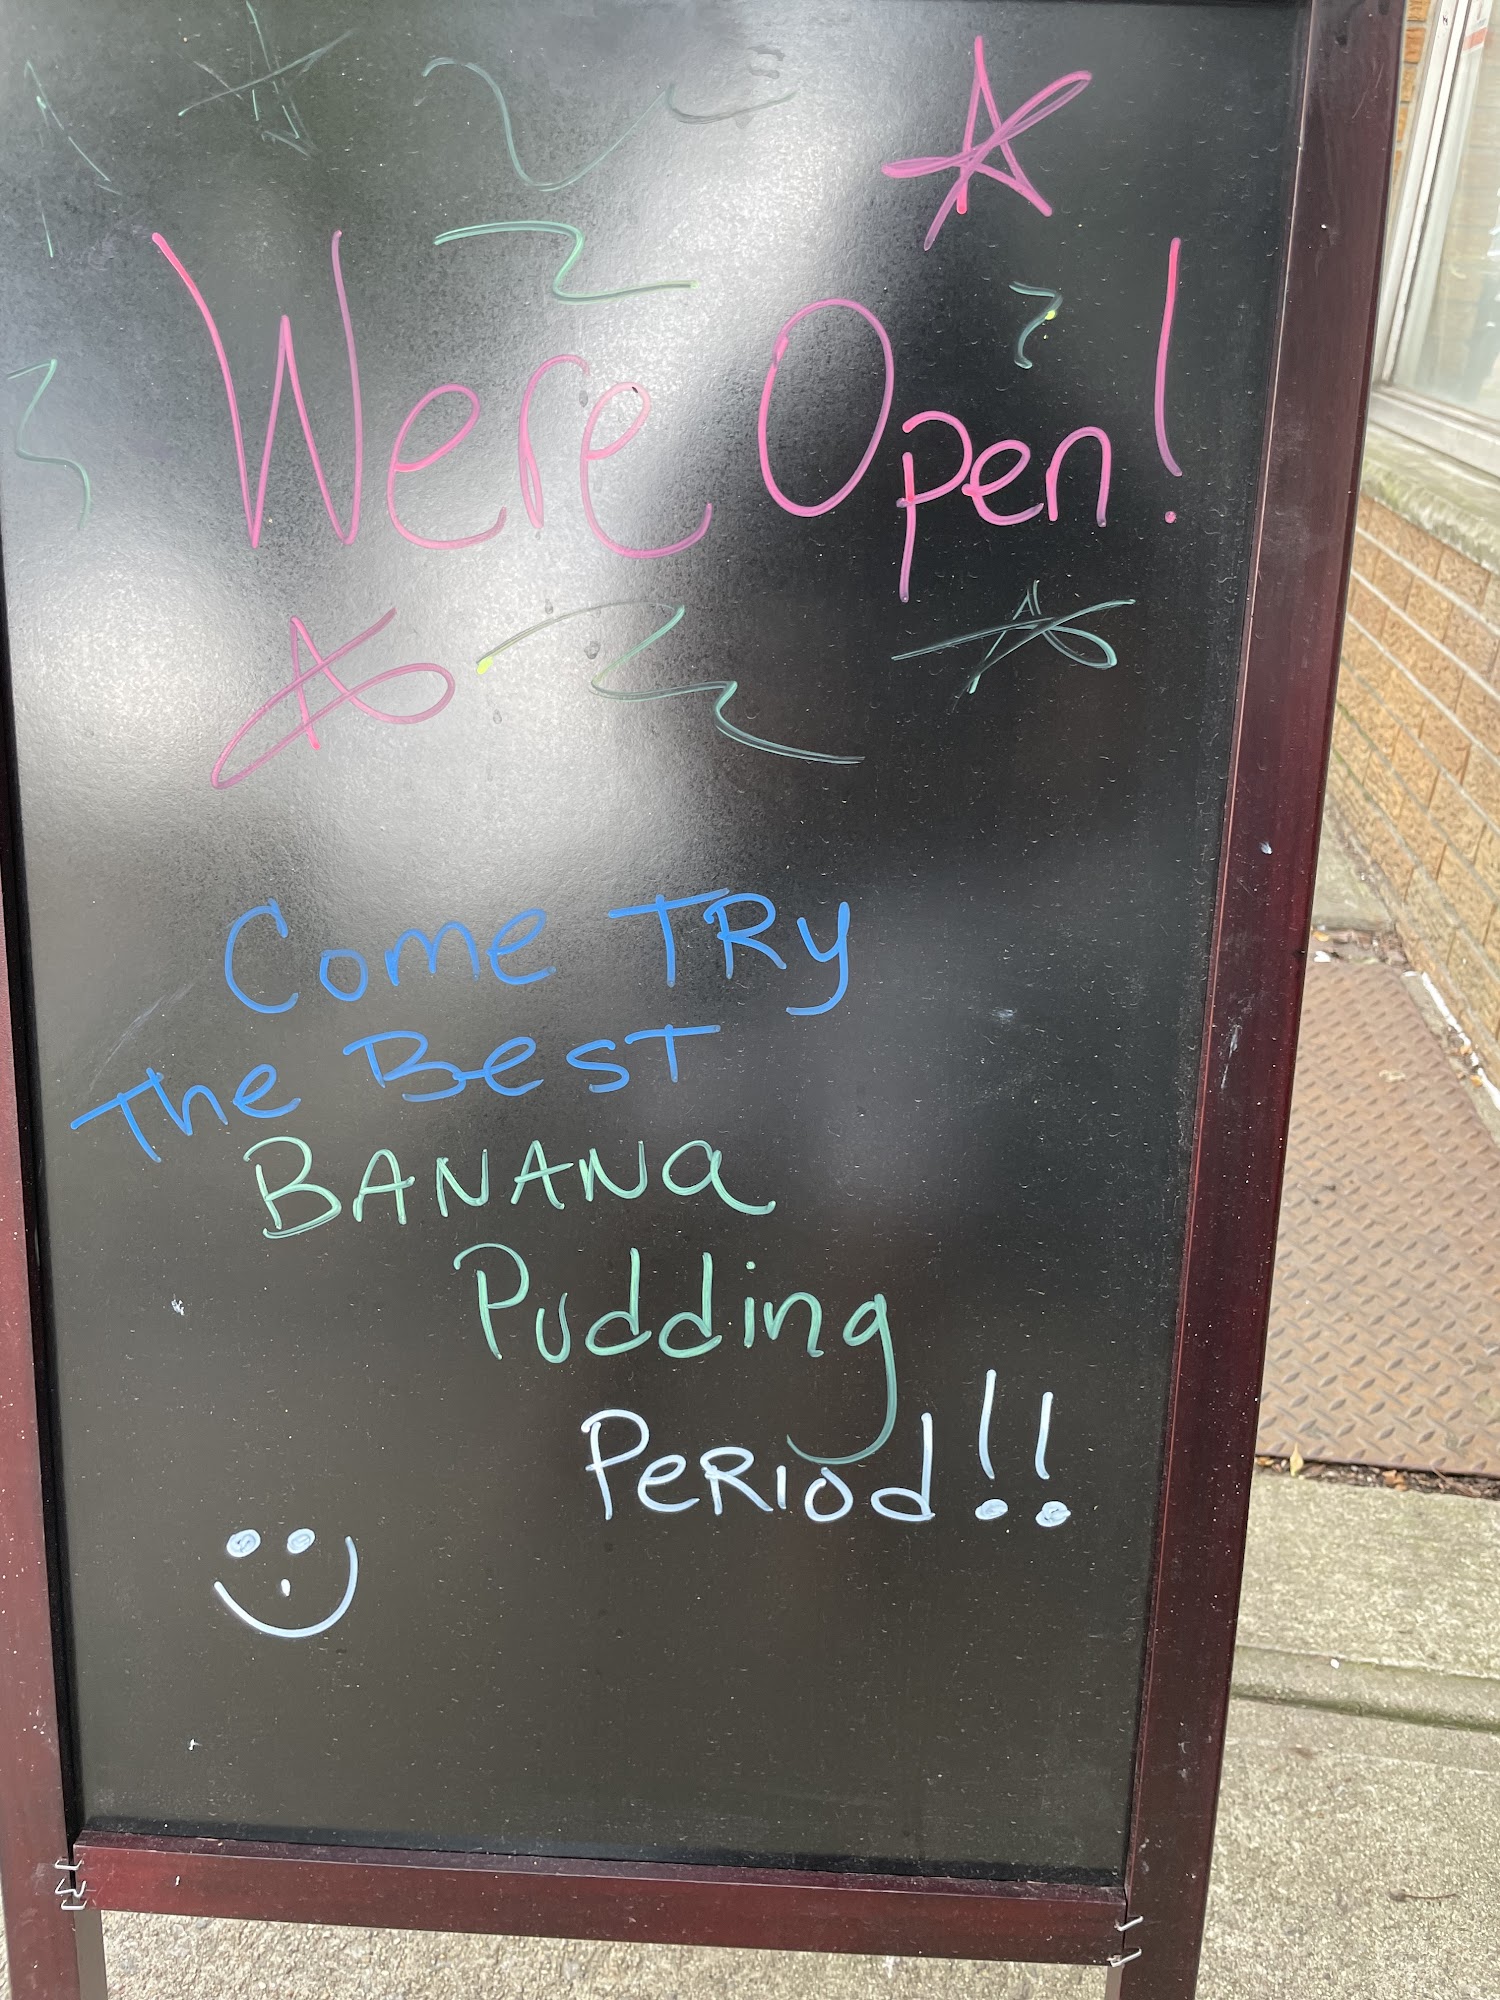 Were Open!
Come TRy
The Best
BANANa
Pudding
PeRiod!!